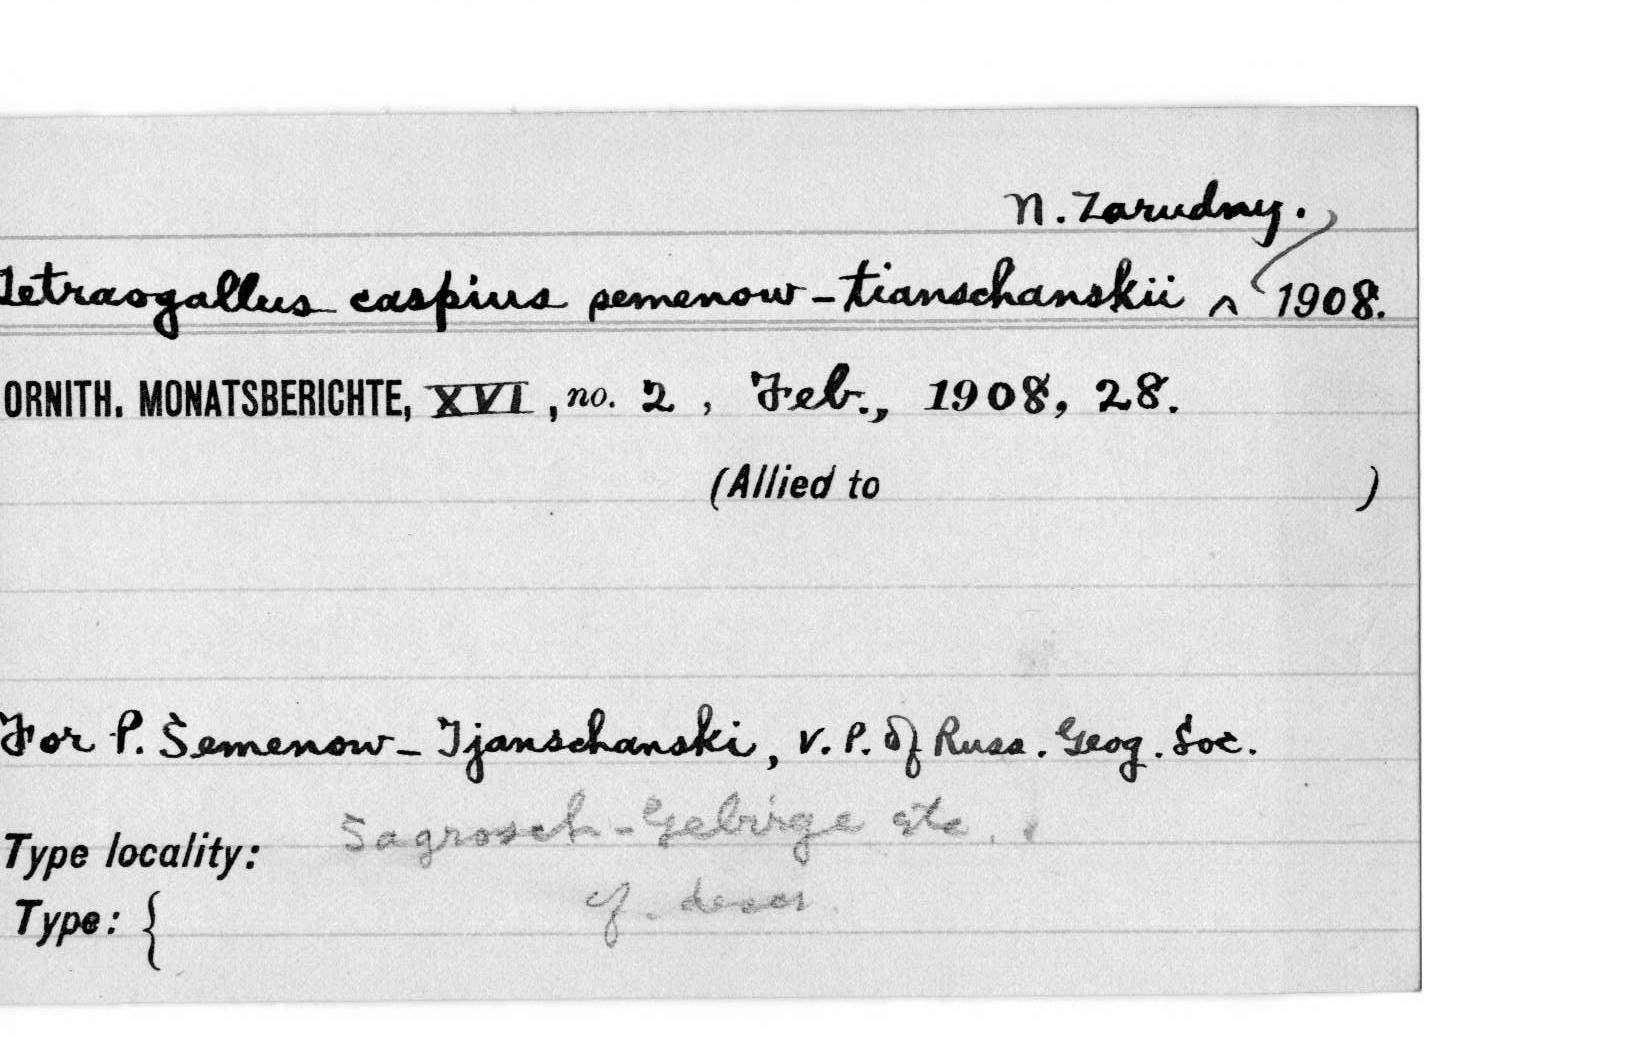 N. Zarudny.,
Tetraogallus caspius semenow-tianschanskii ^ 1908.
ORNITH. MONATSBERICHTE, XVI, no. 2, Feb., 1908, 28.
(Allied to )
For P. Semenow-Tjanschanski, V. P. of Russ. Geog. Soc.
Type locality: Sagrosch-Gebirge etc.
Type: { cf. descr.